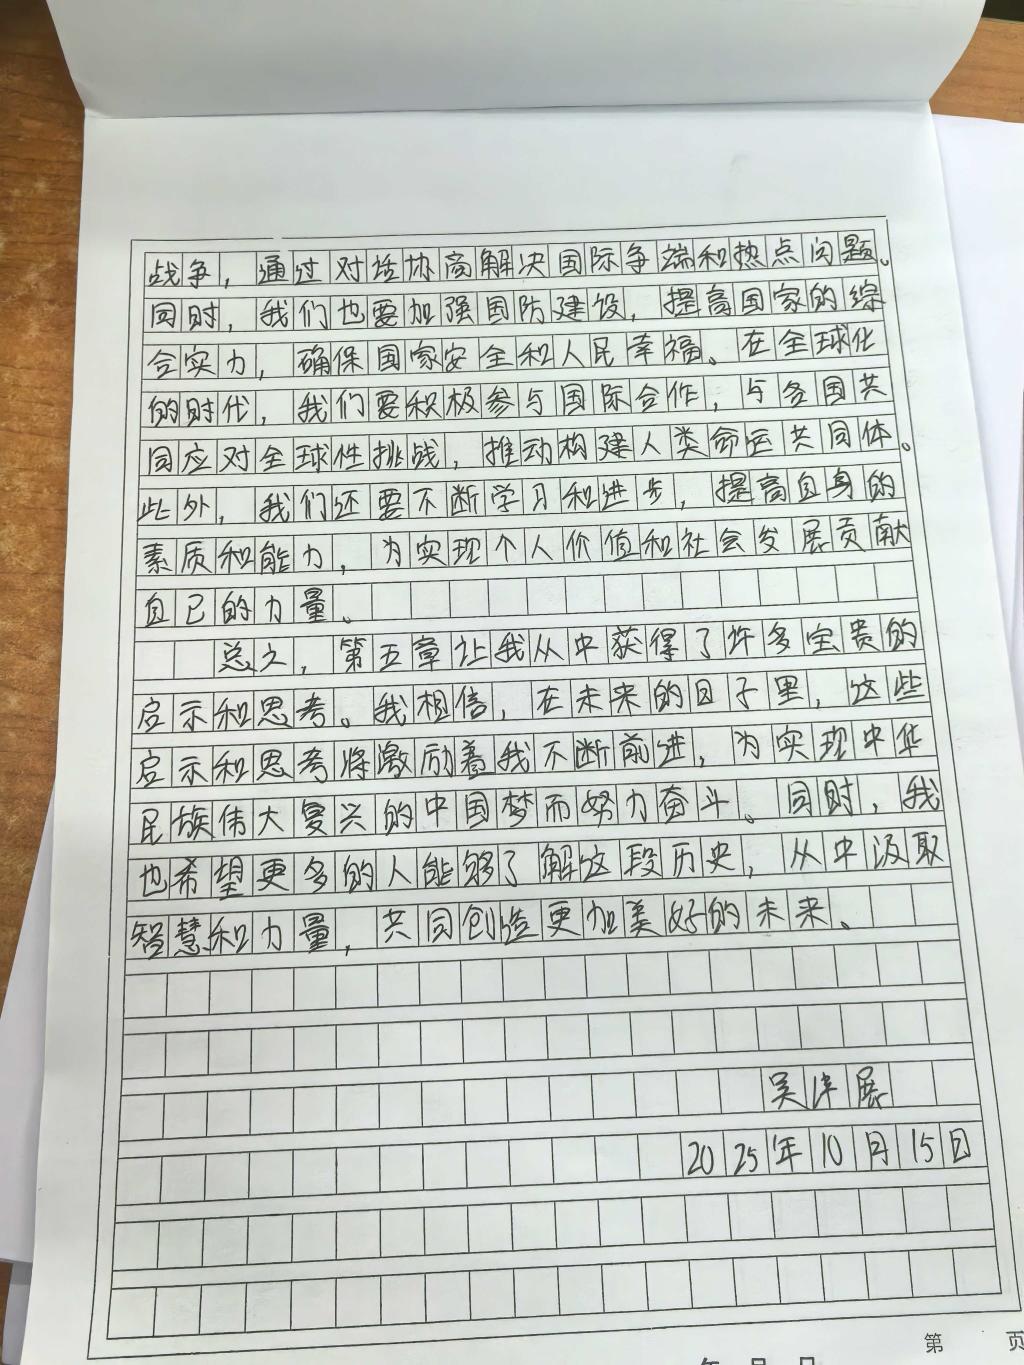 战争，通过对话协商解决国际争端和热点问题。
同时，我们也要加强国防建设，提高国家的综
合实力，确保国家安全和人民幸福。在全球化
的时代，我们要积极参与国际合作，与各国共
同应对全球性挑战，推动构建人类命运共同体。
此外，我们还要不断学习和进步，提高自身的
素质和能力，为实现个人价值和社会发展贡献
自己的力量。
总之，第五章让我从中获得了许多宝贵的
启示和思考。我相信，在未来的日子里，这些
启示和思考将激励着我不断前进，为实现中华
民族伟大复兴的中国梦而努力奋斗。同时，我
也希望更多的人能够了解这段历史，从中汲取
智慧和力量，共同创造更加美好的未来。
吴 展
2025年10月15日
第 页